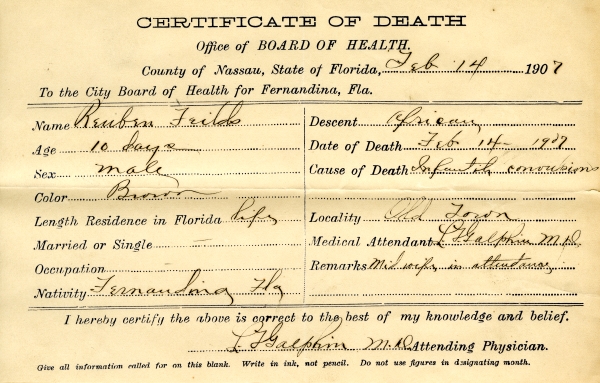 CERTIFICATE OF DEATH
Office of BOARD OF HEALTH.
County of Nassau, State of Florida, Feb 14 1907
To the City Board of Health for Fernandina, Fla.
Name Reuben Feilds
Age 10 days
Sex male
Color Brown
Length Residence in Florida life
Married or Single —
Occupation —
Nativity Fernandina Fla
Descent African
Date of Death Feb 14 - 1907
Cause of Death Infantile convulsions
Locality Old Town
Medical Attendant L Galphin M.D.
Remarks Midwife in attendance
I hereby certify the above is correct to the best of my knowledge and belief.
Galphin M.D. Attending Physician.
Give all information called for on this blank. Write in ink, not pencil. Do not use figures in designating month.